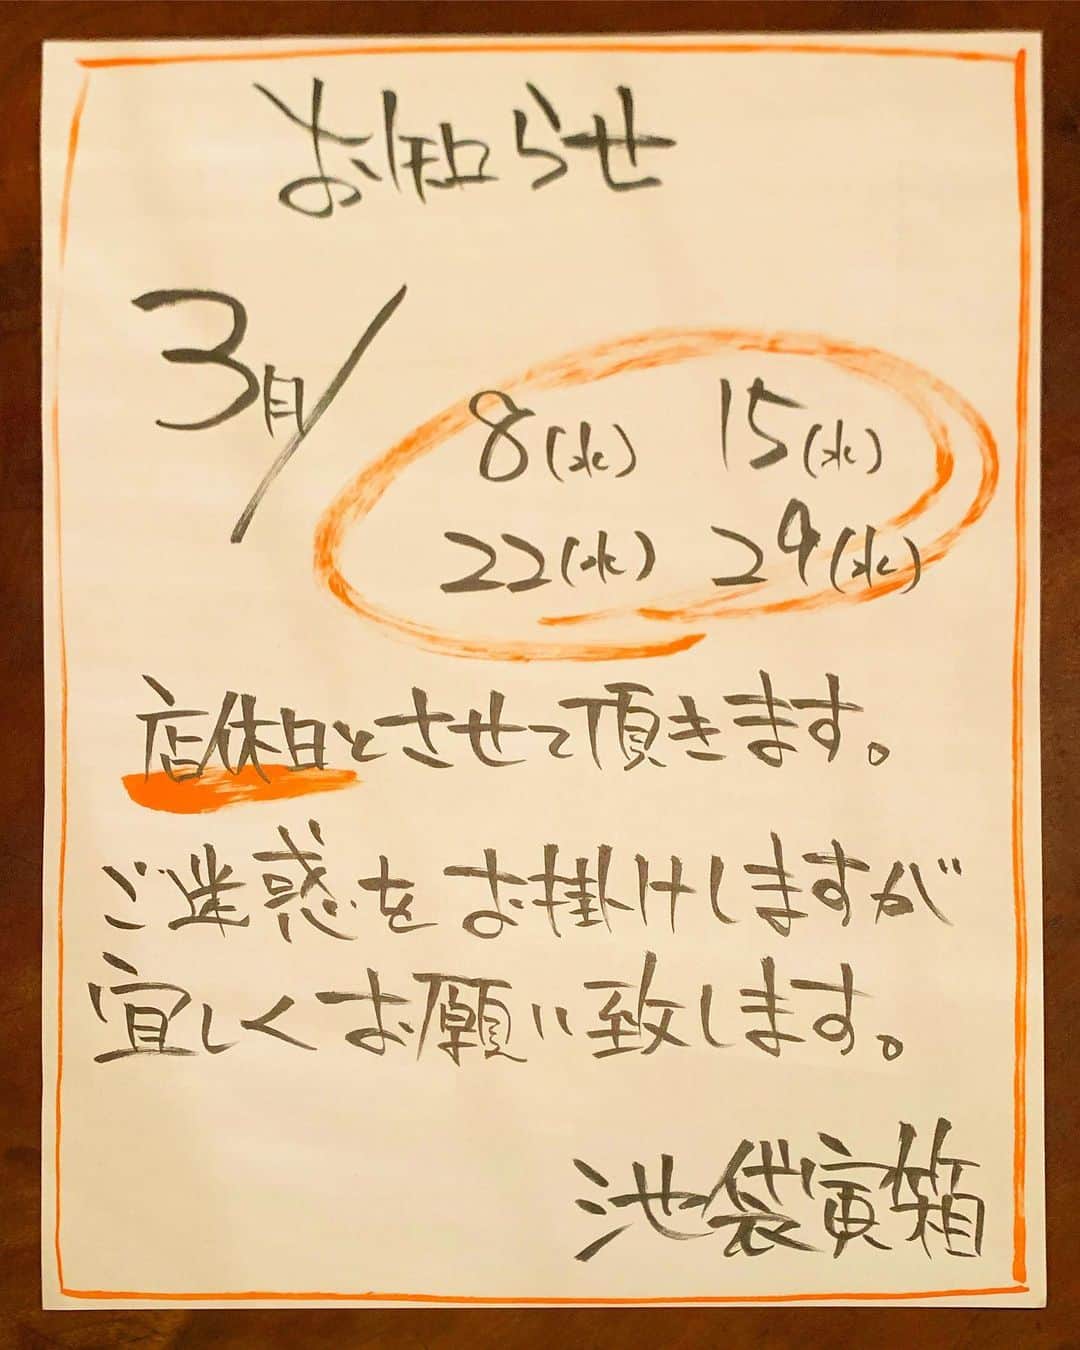 お知らせ
3月/
8(水) 15(水)
22(水) 29(水)
店休日とさせて頂きます。
ご迷惑をお掛けしますが
宜しくお願い致します。
池袋寅箱